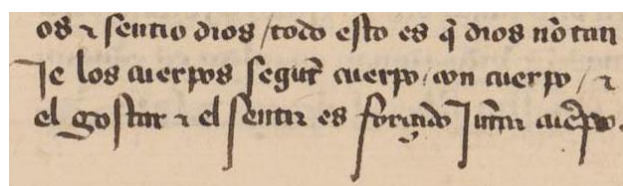 os & sentio dios / todo esto es q̃ dios nõ tan
Je los cuerpos segũt cuerpo / con cuerpo / &
el gostar & el sentir es forçado Jũtar cuẽpo.